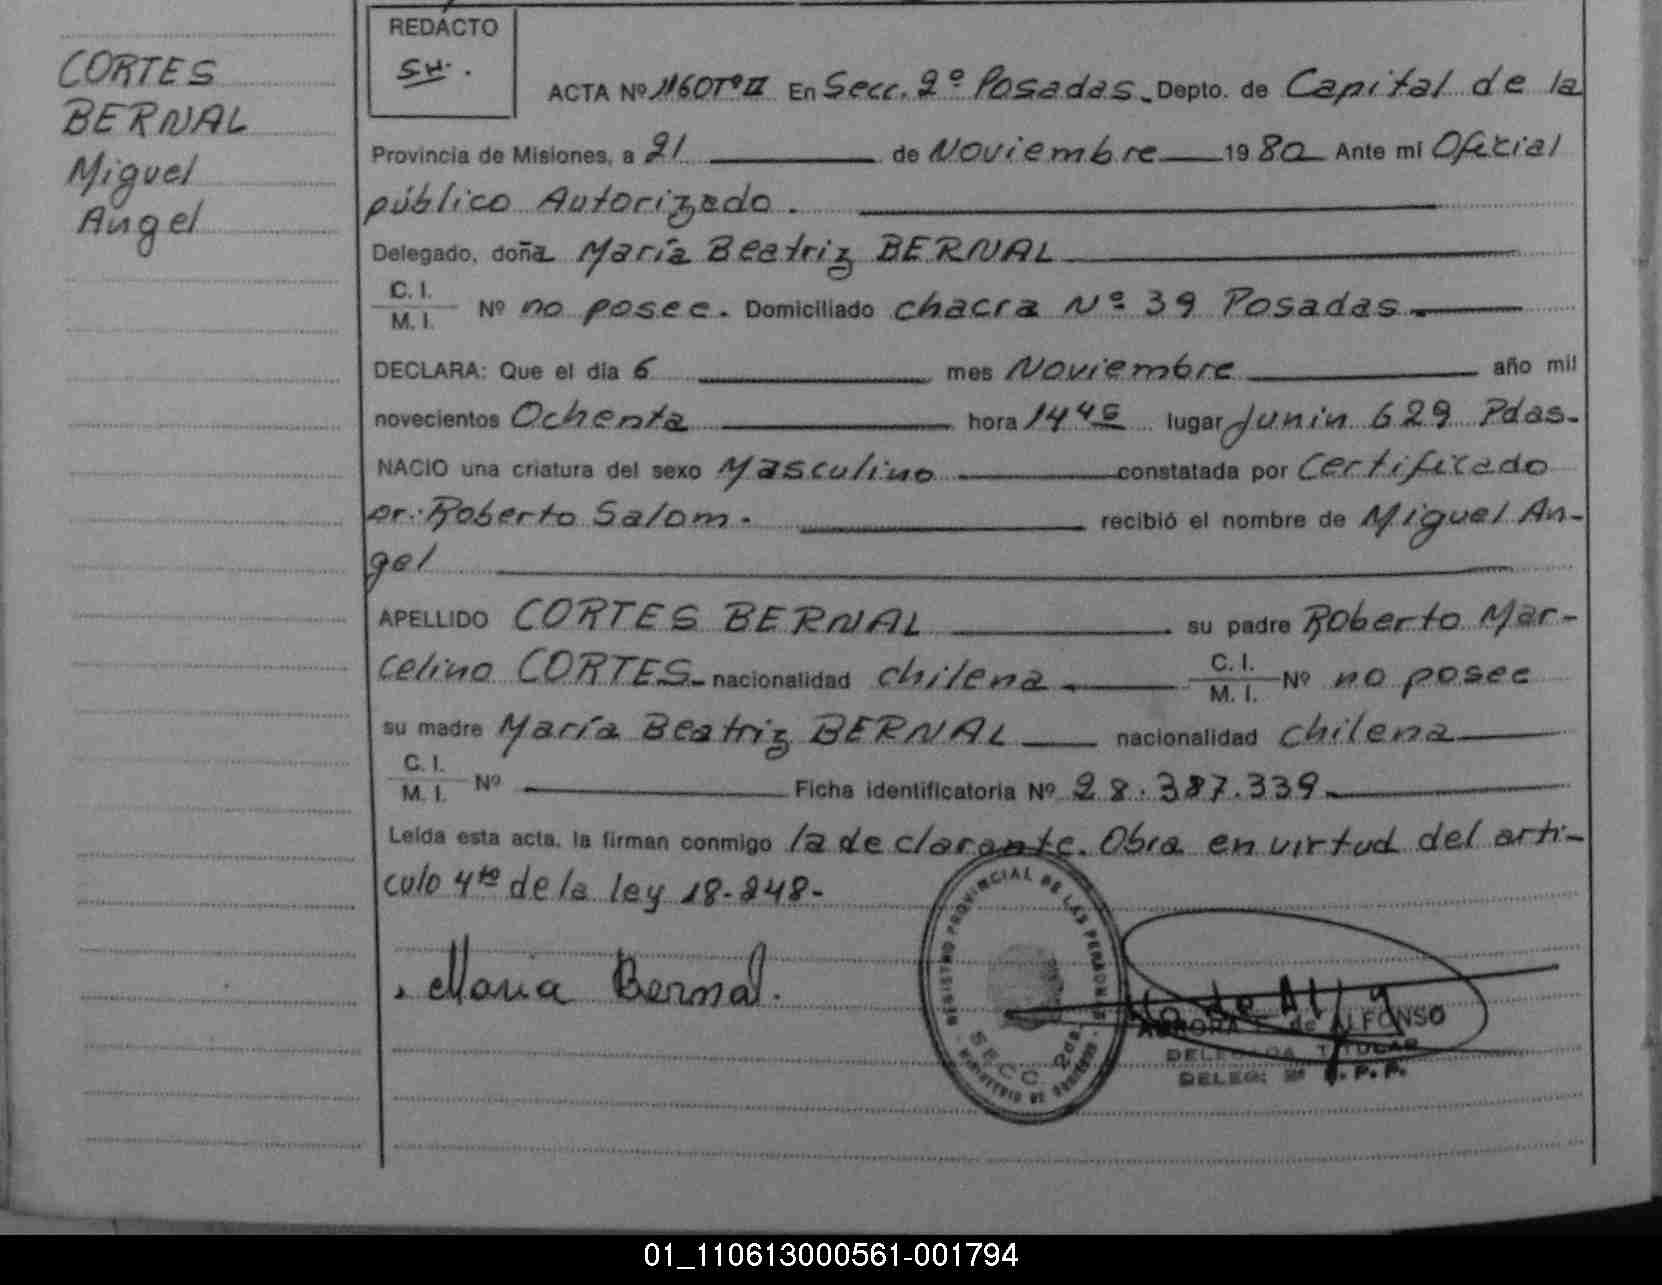 CORTES
BERNAL
Miguel
Angel
REDACTO
SH.
ACTA Nº 1160 Tº II En Secc. 2º Posadas. Depto. de Capital de la
Provincia de Misiones, a 21 de Noviembre 1980 Ante mi Oficial
público Autorizado.
Delegado, doña María Beatriz BERNAL
C. I.
M. I. Nº no posee. Domiciliado chacra Nº 39 Posadas.
DECLARA: Que el día 6 mes Noviembre año mil
novecientos Ochenta hora 14 45 lugar Junin 629 Pdas-
NACIO una criatura del sexo Masculino constatada por Certificado
Dr. Roberto Salom. recibió el nombre de Miguel An-
gel
APELLIDO CORTES BERNAL su padre Roberto Mar-
celino CORTES. nacionalidad chilena. C. I.
M. I. Nº no posee
su madre María Beatriz BERNAL nacionalidad chilena
C. I.
M. I. Nº Ficha identificatoria Nº 28.387.339.
Leída esta acta, la firman conmigo la declarante. Obra en virtud del artí-
culo 4to de la ley 18.248-
Maria Bernal.
REGISTRO PROVINCIAL DE LAS PERSONAS
SECC. 2da
MINISTERIO DE GOBIERNO
AURORA de ALFONSO
DELEGADA TITULAR
DELEG. 2ª R. P. P.
01_110613000561-001794